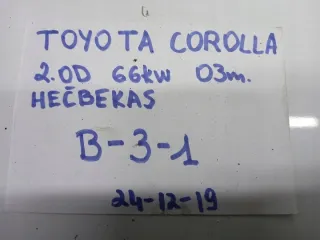 TOYOTA COROLLA
2.0D 66kW 03m.
HEČBEKAS
B-3-1
24-12-19